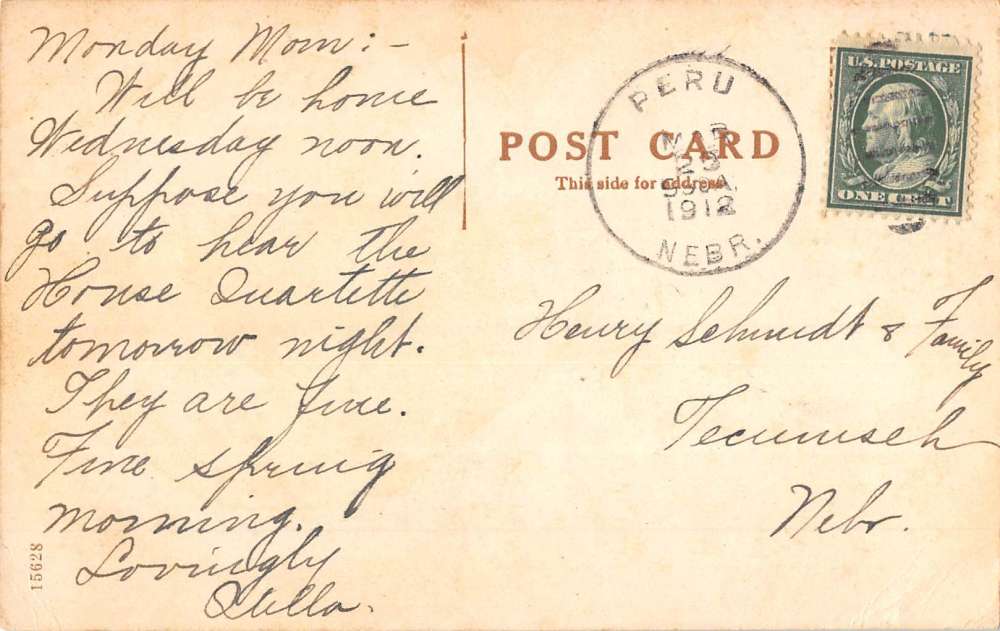 Monday Morn:-
Will be home
Wednesday noon.
Suppose you will
go to hear the
House Quartette
tomorrow night.
They are fine.
Fine spring
morning.
Lovingly
Stella.
15628
POST CARD
This side for address
PERU
23
1912
NEBR.
U.S. POSTAGE
ONE CENT
Henry Schmidt & Family
Tecumseh
Nebr.